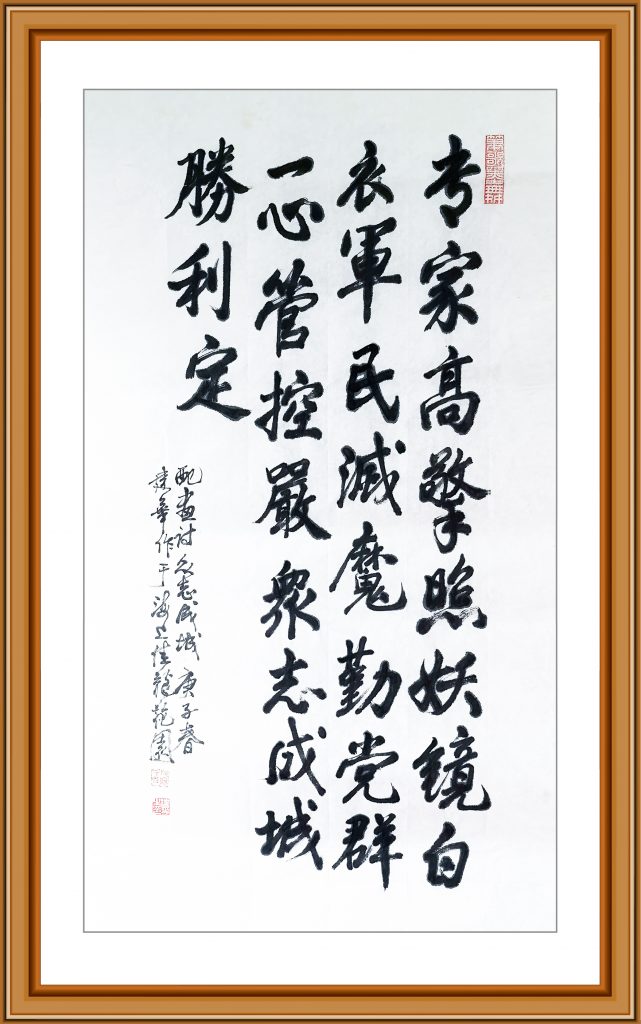 专家高擎照妖镜白
衣軍民滅魔勤党群
一心管控嚴衆志成城
勝利定
配画诗众志成城 庚子春
華作于海上佳龍苑園